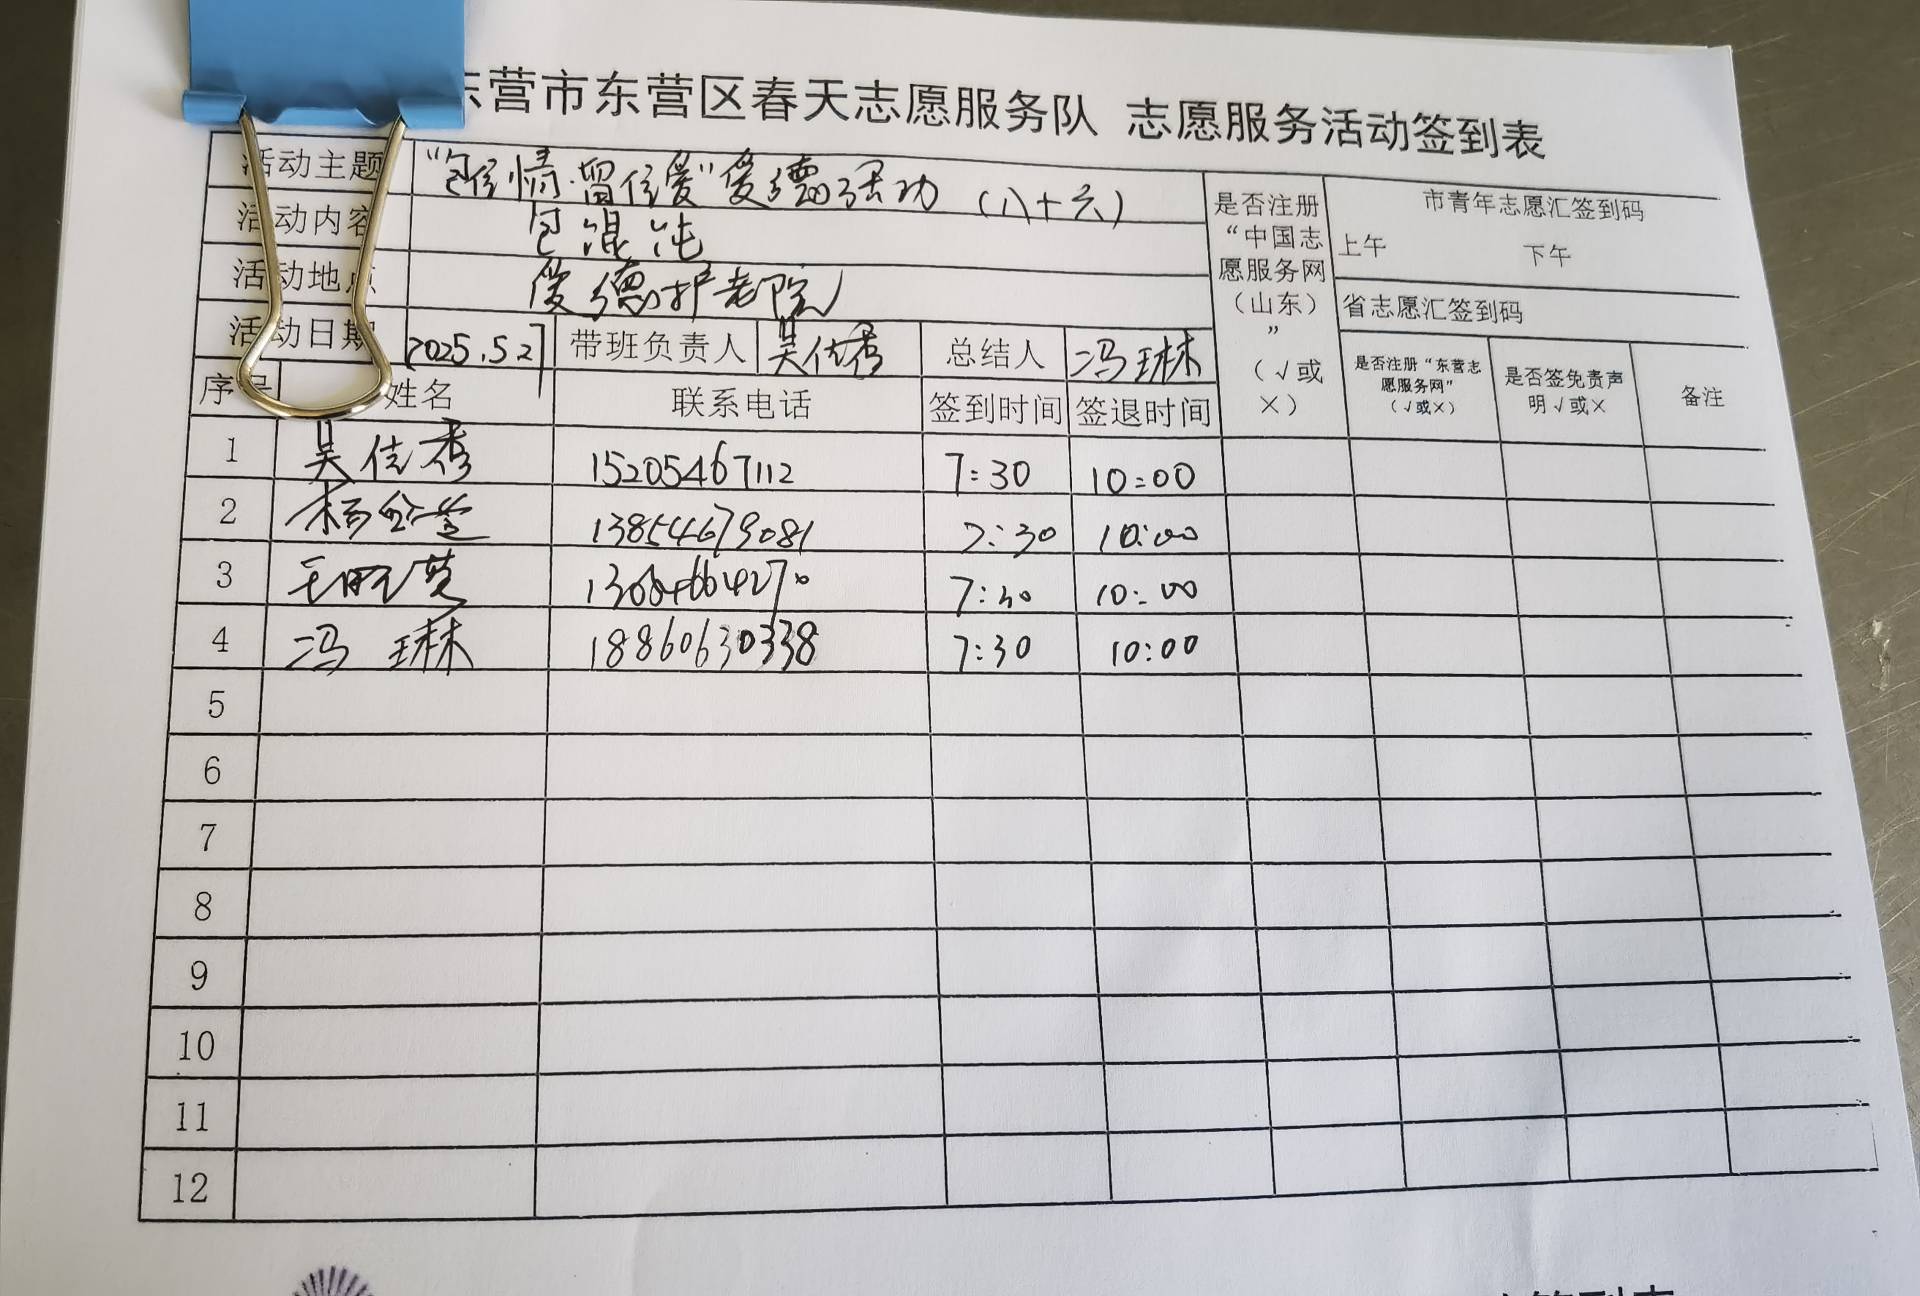 东营市东营区春天志愿服务队 志愿服务活动签到表
活动主题 "包住情·留住爱"爱德活动（八十六）
活动内容 包混沌
活动地点 爱德护老院
活动日期 2025.5.27 带班负责人 吴佳秀 总结人 冯琳
是否注册“中国志愿服务网（山东）”（√或×）
市青年志愿汇签到码
上午 下午
省志愿汇签到码
序号 姓名 联系电话 签到时间 签退时间 是否注册“东营志愿服务网”（√或×） 是否签免责声明√或× 备注
1 吴佳秀 15205467112 7:30 10:00
2 杨 13854679081 7:30 10:00
3 王 7:30 10:00
4 冯琳 18860630338 7:30 10:00
5
6
7
8
9
10
11
12